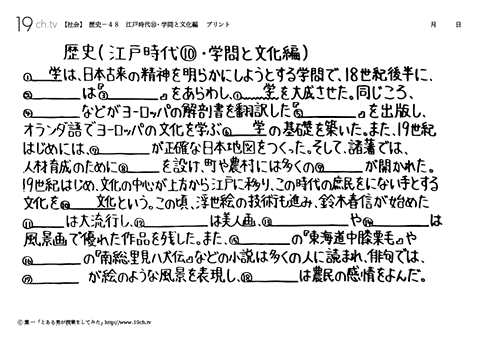 19ch.tv 【社会】 歴史－48 江戸時代⑩・学問と文化編 プリント 月 日
歴史(江戸時代⑩・学問と文化編)
①____学は、日本古来の精神を明らかにしようとする学問で、18世紀後半に、
②________は『③________』をあらわし、①____学を大成させた。同じころ、
④________などがヨーロッパの解剖書を翻訳した『⑤________』を出版し、
オランダ語でヨーロッパの文化を学ぶ⑥____学の基礎を築いた。また、19世紀
はじめには、⑦________が正確な日本地図をつくった。そして、諸藩では、
人材育成のために⑧______を設け、町や農村には多くの⑨________が開かれた。
19世紀はじめ、文化の中心が上方から江戸に移り、この時代の庶民をにない手とする
文化を⑩____文化という。この頃、浮世絵の技術も進み、鈴木春信が始めた
⑪______は大流行し、⑫________は美人画、⑬________や⑭________は
風景画で優れた作品を残した。また、⑮________の『東海道中膝栗毛』や
⑯________の『南総里見八犬伝』などの小説は多くの人に読まれ、俳句では、
⑰________が絵のような風景を表現し、⑱________は農民の感情をよんだ。
© 葉一「とある男が授業をしてみた」http://www.19ch.tv